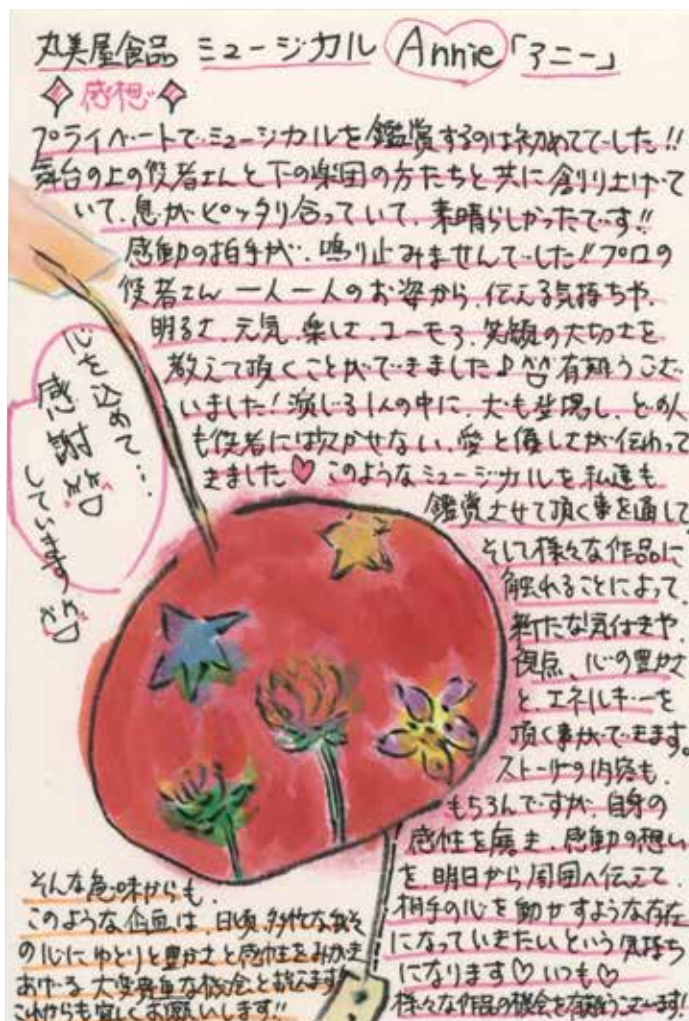 丸美屋食品 ミュージカル Annie 「アニー」
感想
プライベートでミュージカルを鑑賞するのは初めてでした!!
舞台の上の役者さんと下の楽団の方たちと共に創り上げて
いて、息がピッタリ合っていて、素晴らしかったです!!
感動の拍手が、鳴り止みませんでした!!プロの
役者さん一人一人のお姿から、伝える気持ちや、
明るさ、元気、楽しさ、ユーモア、笑顔の大切さを
教えて頂くことができました♪有難うござ
いました!演じる1人の中に、犬も登場し、どの人
も役者には欠かせない、愛と優しさが伝わって
きました♡このようなミュージカルを私達も
鑑賞させて頂く事を通して、
そして様々な作品に
触れることによって、
新たな気付きや、
視点、心の豊かさ
と、エネルギーを
頂く事ができます。
ストーリーの内容も、
もちろんですが、自身の
感性を磨き、感動の想い
を、明日から周囲へ伝えて、
相手の心を動かすような存在
になっていきたいという気持ち
になります♡いつも♡
様々な作品の機会を有難うございます!
心を込めて…
感謝
しています
そんな意味からも、
このような企画は、日頃、多忙な
の心にゆとりと豊かさと感性をみがき
あげる、大変貴重な機会と
これからも宜しくお願いします!!